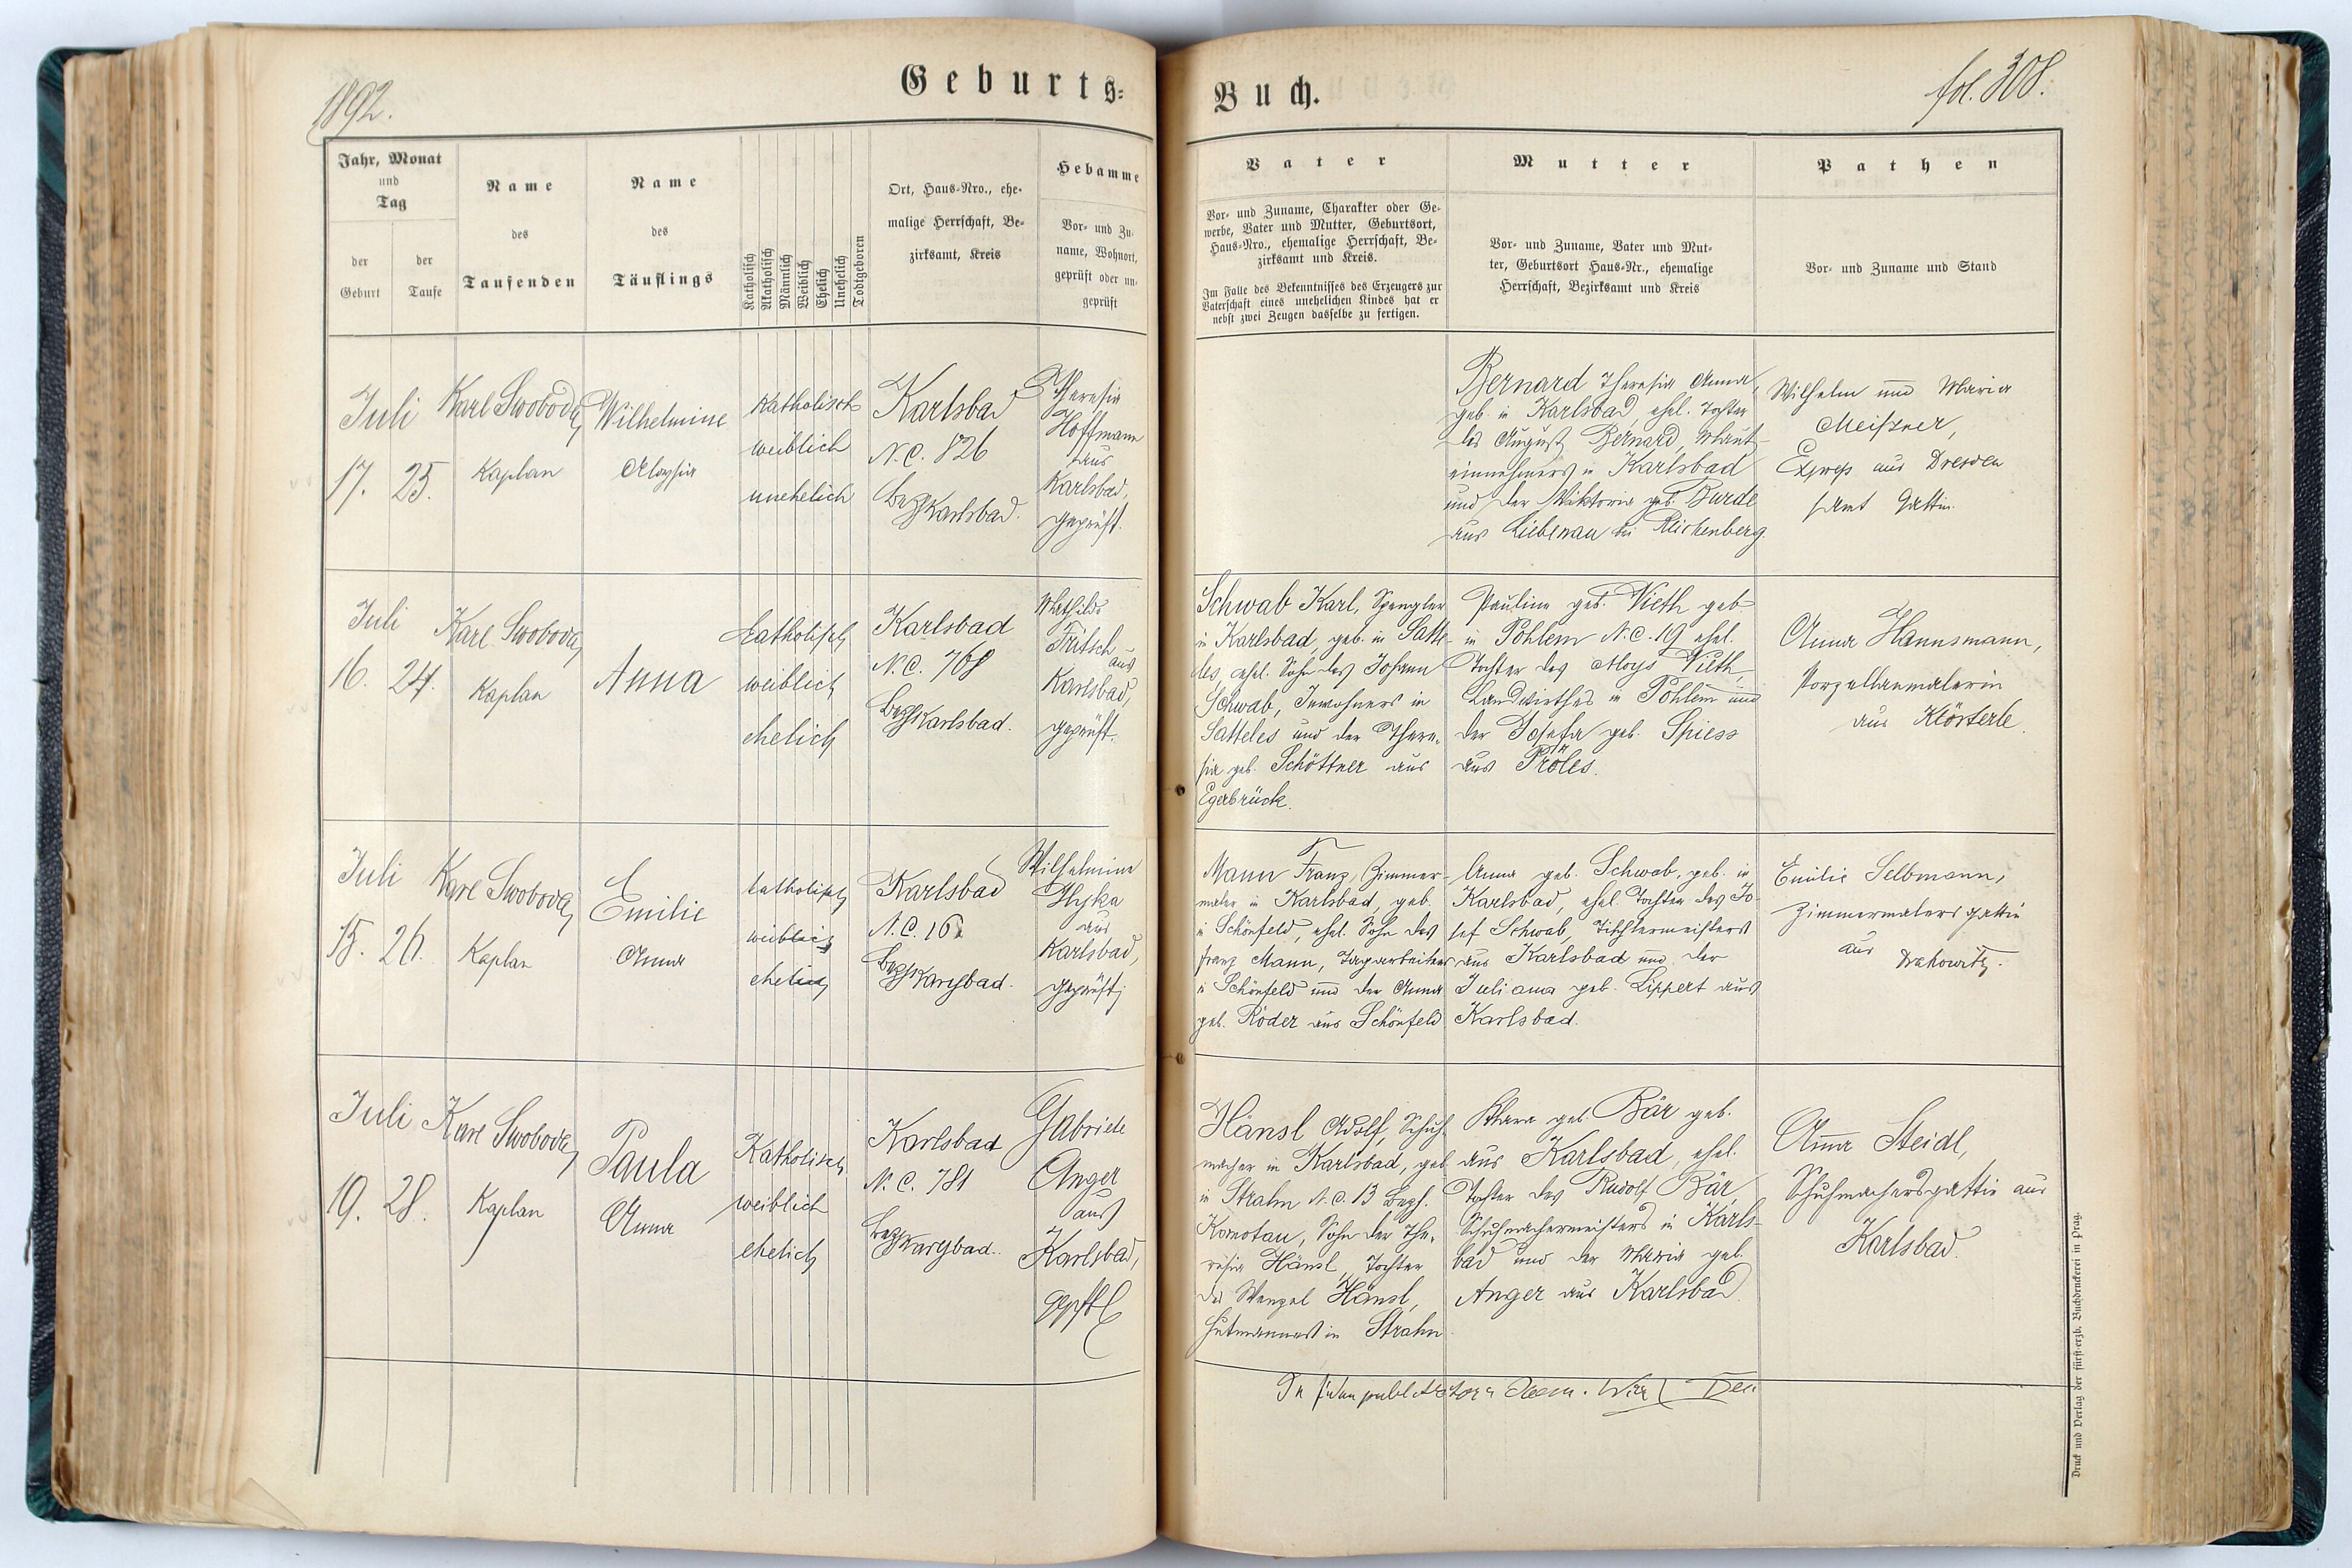 1892.
Geburts-
Buch.
fol. 308.
Jahr, Monat
und
Tag
der
Geburt
der
Taufe
Name
des
Taufenden
Name
des
Täuflings
Katholisch
Akatholisch
Männlich
Weiblich
Ehelich
Unehelich
Todtgeboren
Ort, Haus-Nro., ehe-
malige Herrschaft, Be-
zirksamt, Kreis
Hebamme
Vor- und Zu-
name, Wohnort,
geprüft oder un-
geprüft
Vater
Vor- und Zuname, Charakter oder Ge-
werbe, Vater und Mutter, Geburtsort,
Haus-Nro., ehemalige Herrschaft, Be-
zirksamt und Kreis.
Im Falle des Bekenntnisses des Erzeugers zur
Vaterschaft eines unehelichen Kindes hat er
nebst zwei Zeugen dasselbe zu fertigen.
Mutter
Vor- und Zuname, Vater und Mut-
ter, Geburtsort Haus-Nr., ehemalige
Herrschaft, Bezirksamt und Kreis
Pathen
Vor- und Zuname und Stand
Juli
17. 25.
Karl Swoboda,
Kaplan
Wilhelmine
Aloysia
katholisch
weiblich
unehelich
Karlsbad
N.C. 826
Bezh Karlsbad.
Theresia
Hoffmann
aus
Karlsbad,
geprüft.
Bernard Theresia Anna,
geb. in Karlsbad ehel. Tochter
des August Bernard, Maut-
einnehmers in Karlsbad
und der Viktoria geb. Burde
aus Liebenau bei Reichenberg
Wilhelm und Maria
Meißner,
aus Dresden
samt Gattin.
Juli
16. 24.
Karl Swoboda,
Kaplan
Anna
katholisch
weiblich
ehelich
Karlsbad
N.C. 768
Bezh Karlsbad.
Mathilde
Fritsch
aus
Karlsbad,
geprüft.
Schwab Karl, Spengler
in Karlsbad, geb. in Satte-
les, ehel. Sohn des Johann
Schwab, Inwohners in
Satteles und der There-
sia geb. Schöttner aus
Egerbrück.
Pauline geb. Vieth geb
in Pohlem N.C. 19 ehel.
Tochter des Aloys Vieth,
Landwirthes in Pohlem und
der Josefa geb. Spiess
aus Pröles.
Anna Hannsmann,
Porzellanmalerin
aus Klösterle.
Juli
15. 26.
Karl Swoboda,
Kaplan
Emilie
Anna
katholisch
weiblich
ehelich
Karlsbad
N.C.
Bezh Karlsbad.
Wilhelmine
Hyka
aus
Karlsbad,
geprüft
Mann Franz, Zimmer-
maler in Karlsbad, geb.
in Schönfeld, ehel. Sohn des
Franz Mann, Tagarbeiters
in Schönfeld und der Anna
geb. Röder aus Schönfeld
Anna geb. Schwab, geb. in
Karlsbad, ehel. Tochter des Jo-
sef Schwab, Tischlermeisters
aus Karlsbad und der
Juliana geb. Lippert aus
Karlsbad.
Emilie Selbmann,
Zimmermalersgattin
aus Drahowitz.
Juli
19. 28.
Karl Swoboda,
Kaplan
Paula
Anna
Katholisch
weiblich
ehelich
Karlsbad
N.C. 781
Bezh Karlsbad.
Gabriele
Anger
aus
Karlsbad,
gepft
Hänsl Adolf, Schuh-
macher in Karlsbad, geb
in Strahn N.C. 13 Bezh.
Komotau, Sohn der The-
resia Hänsl, Tochter
des Wenzel Hänsl,
Hutmannes in Strahn
Klara geb. Bär geb.
aus Karlsbad, ehel.
Tochter des Rudolf Bär,
Schuhmachermeisters in Karls-
bad und der Maria geb.
Anger aus Karlsbad
Anna Steidl,
Schuhmachersgattin aus
Karlsbad.
Druck und Verlag der fürst-erzb. Buchdruckerei in Prag.